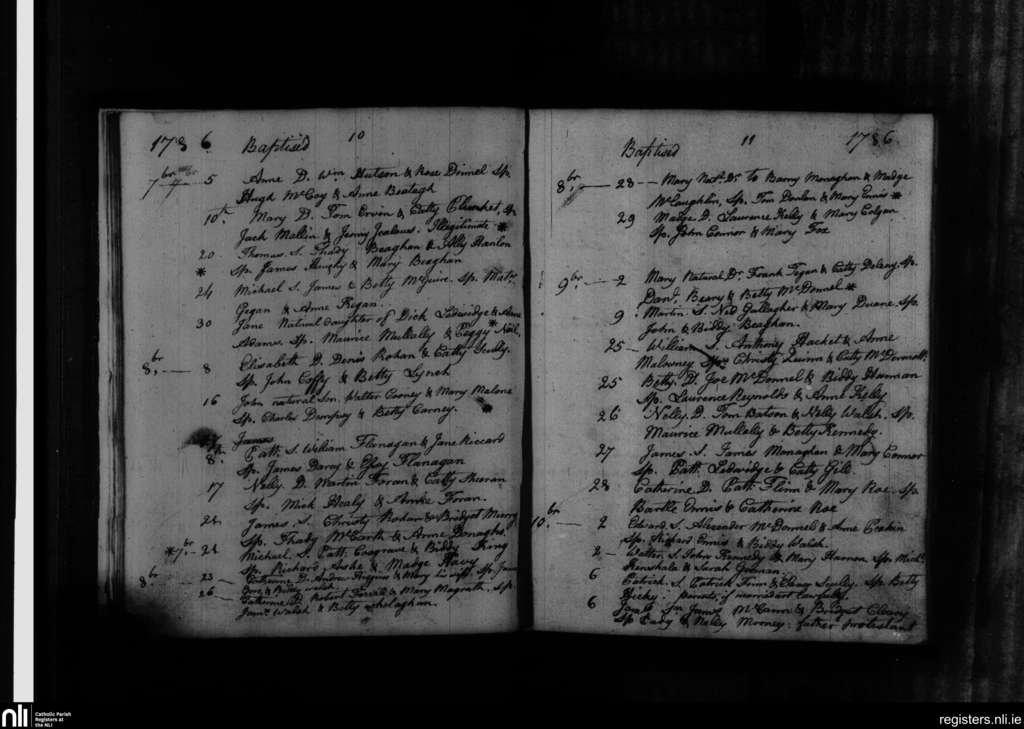 1786. Baptised 10
7br 5 Anne D. Wm Hutson & Rose Dinnel Sp.
Hugh McCoy & Anne Beatagh
10th Mary D. Tom Ervin & Catty Plunket, Sp.
Jack Mallin & Jenny Jealous. Illegitimate *
20 Thomas S. Thady Beaghan & Ally Hanlon
* Sp. James & Mary Beaghan
24 Michael S. James & Betty McGuire. Sp. Matw
Gegan & Anne Fegan.
30 Jane Natural daughter of Dick Ledwidge & Anne
Adams. Sp. Maurice Mullally & Peggy Neil. *
8br 8 Elisabeth D. Denis Rohan & Catty Scully.
Sp. John Coffy & Betty Lynch
16 John natural Son. Walter Cooney & Mary Malone
Sp. Charles Dempsey & Betty Carney.
James
8. Patt. S. William Flanagan & Jane Kiccard
Sp. James Darcy & Flanagan
17 Nelly D. Martin Foran & Catty Sharan
Sp. Mick Healy & Foran.
22 James S. Christy Rohan & Bridget Murry
Sp. Thady McCarth & Anne Donaghs.
*7br 21 Michael. S. Patt. Cosgrave & Biddy
Sp. Richard Ashe & Madge Havy
8br 23 Catherine D. Andrew Higgins & Mary his wife Sp. James
26 Catherine D. Robert Farrell & Mary Magrath. Sp.
James Walsh & Betty
Baptised 11 1786.
8br, 28 Mary Natl. Dr. to Barny Monaghan & Madge
McLaughlin, Sp. Tom Donlan & Mary Ennis *
29 Madge D. Laurence Kelly & Mary Colgan
Sp. John Connor & Mary Fox
9br. 2 Mary Natural Dr. Frank Fegan & Catty Delany Sp.
Danl. Beary & Betty McDonnel *
9 Martin. S. Ned Gallagher & Mary Duane Sp.
John & Biddy Beaghan.
25 William S. Anthony Hacket & Anne
Malowney Sp. Christy Quinn & Catty McDermott.
25 Betty. D. Joe McDonnel & Biddy Hannan
Sp. Laurence Reynolds & Anne Kelly
26 Nelly. D. Tom Batson & Nelly Walsh. Sp.
Maurice Mullally & Betty Kennedy.
27 James. S. James Monaghan & Mary Connor
Sp. Patt. Ledwidge & Catty Gill
28 Catherine D. Patt. Flinn & Mary Roe. Sp.
Bartle Ennis & Catherine Roe
10br. 2 Edward S. Alexander McDonnell & Anne
Sp. Richard Ennis & Biddy Walsh.
2 Walter. S. John Kennedy & Mary Harmon Sp. Michl.
Kenshala & Sarah
6 Patrick. S. Patrick Finn & Scully. Sp. Betty
Hicky: parents, if married not lawfully.
6 James Sn. James McCann & Bridget Cleary
Sp & Nelly Mooney: father protestant
nli Catholic Parish
Registers at
the NLI
registers.nli.ie